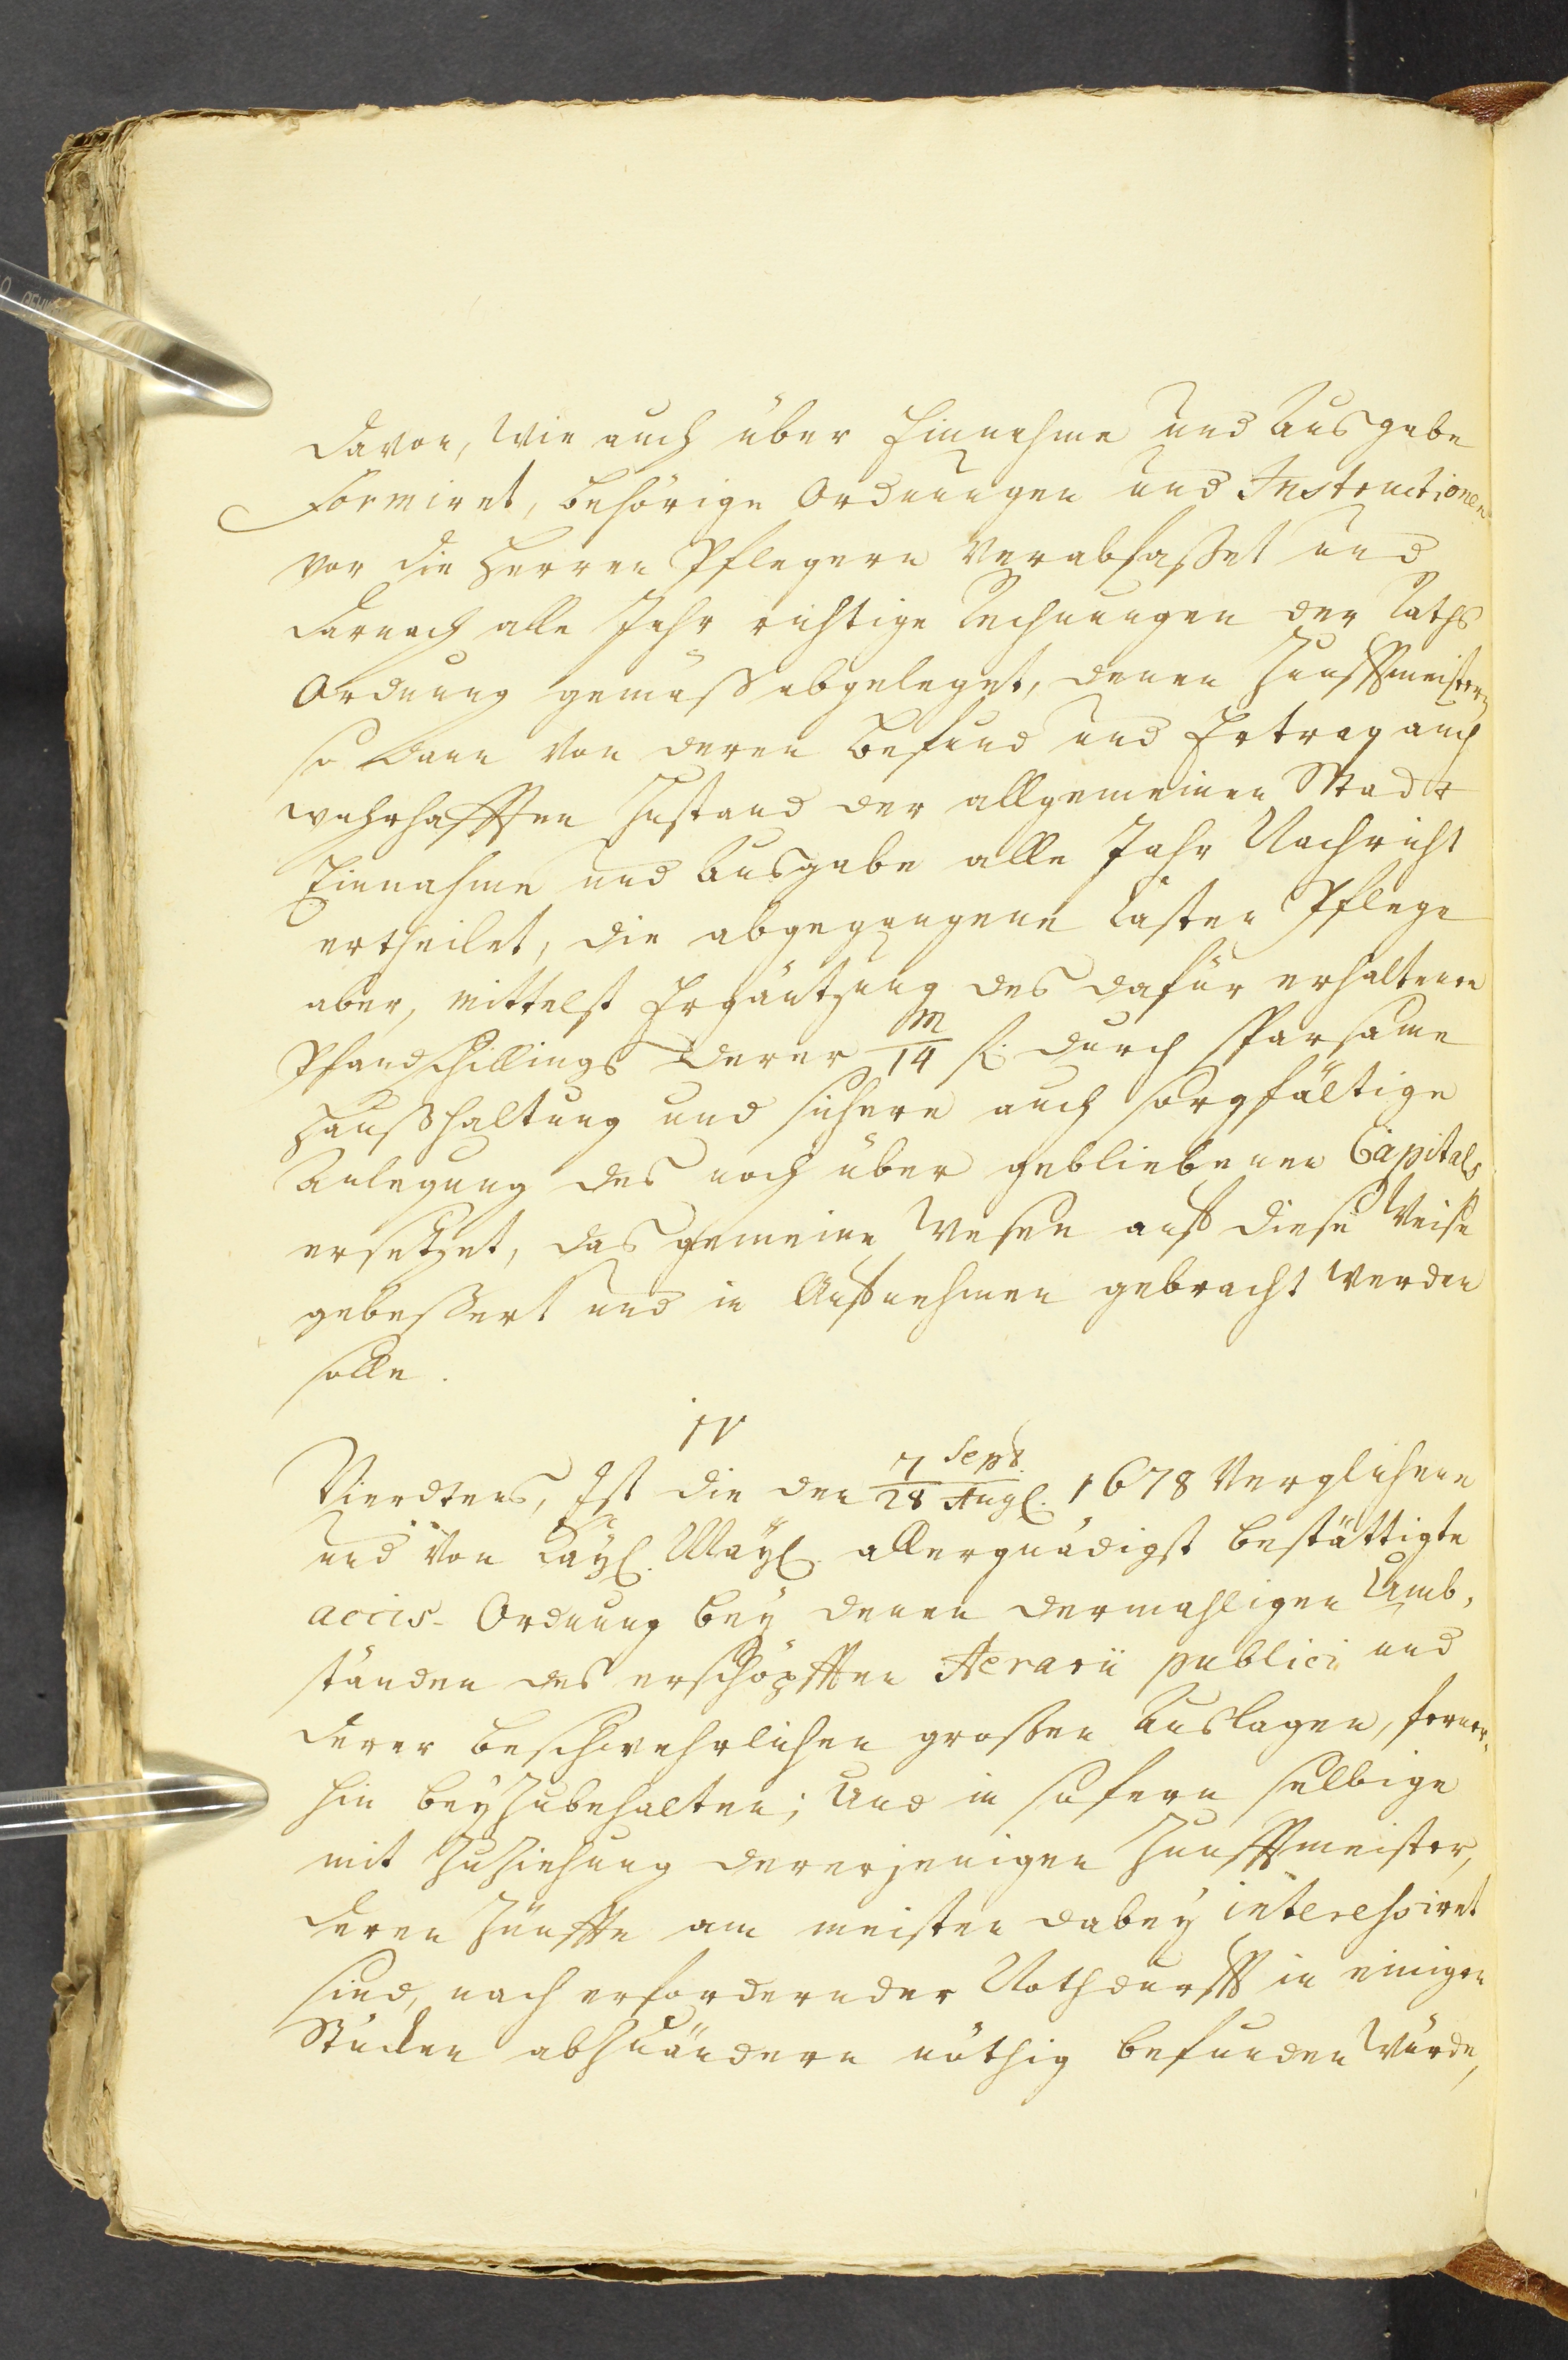 davon, wie auch über Einnahme und Ausgabe
Formiret, behörige Ordnungen und Instructionen
vor die Herren Pflegere verabfaßet und
darnach alle Jahr richtige Rechnungen der Raths
Ordnung gemäß abgeleget, denen Zunfftmeistern
so dann von deren Befund und Ertrag auch
wahrhafften Zustand der allgemeinen Stadt
Einnahme und Ausgabe alle Jahr Nachricht
ertheilet, die abgegangene Kasten Pflege
aber, mittelst Ergäntzung des dafür erhaltenen
Pfandschillings derer 14/m fl. durch sparsame
Haußhaltung und sichere auch sorgfältige
Anlegung des noch über gebliebenen Capitals
ersetzet, das gemeine Wesen auf diese Weise
gebeßert und in Aufnehmen gebracht werden
solle.
IV
Vierdtens, Ist die den 7 Sept./28 Aug. 1678 verglichene
und von Kayl. Mayl. allergnädigst bestättigte
accis-Ordnung bey denen dermahligen Umb,
ständen des erschöpfften Aerarii publici und
derer beschwehrlichen großen Auslagen, ferner,
hin beyzubehalten; Und in sofern selbige
mit Zuziehung dererjenigen Zunfftmeister,
deren Zünffte am meisten dabey interessiret
sind, nach erfordernder Nothdurfft in einigen
Stücken abzuändern nöthig befunden würde,